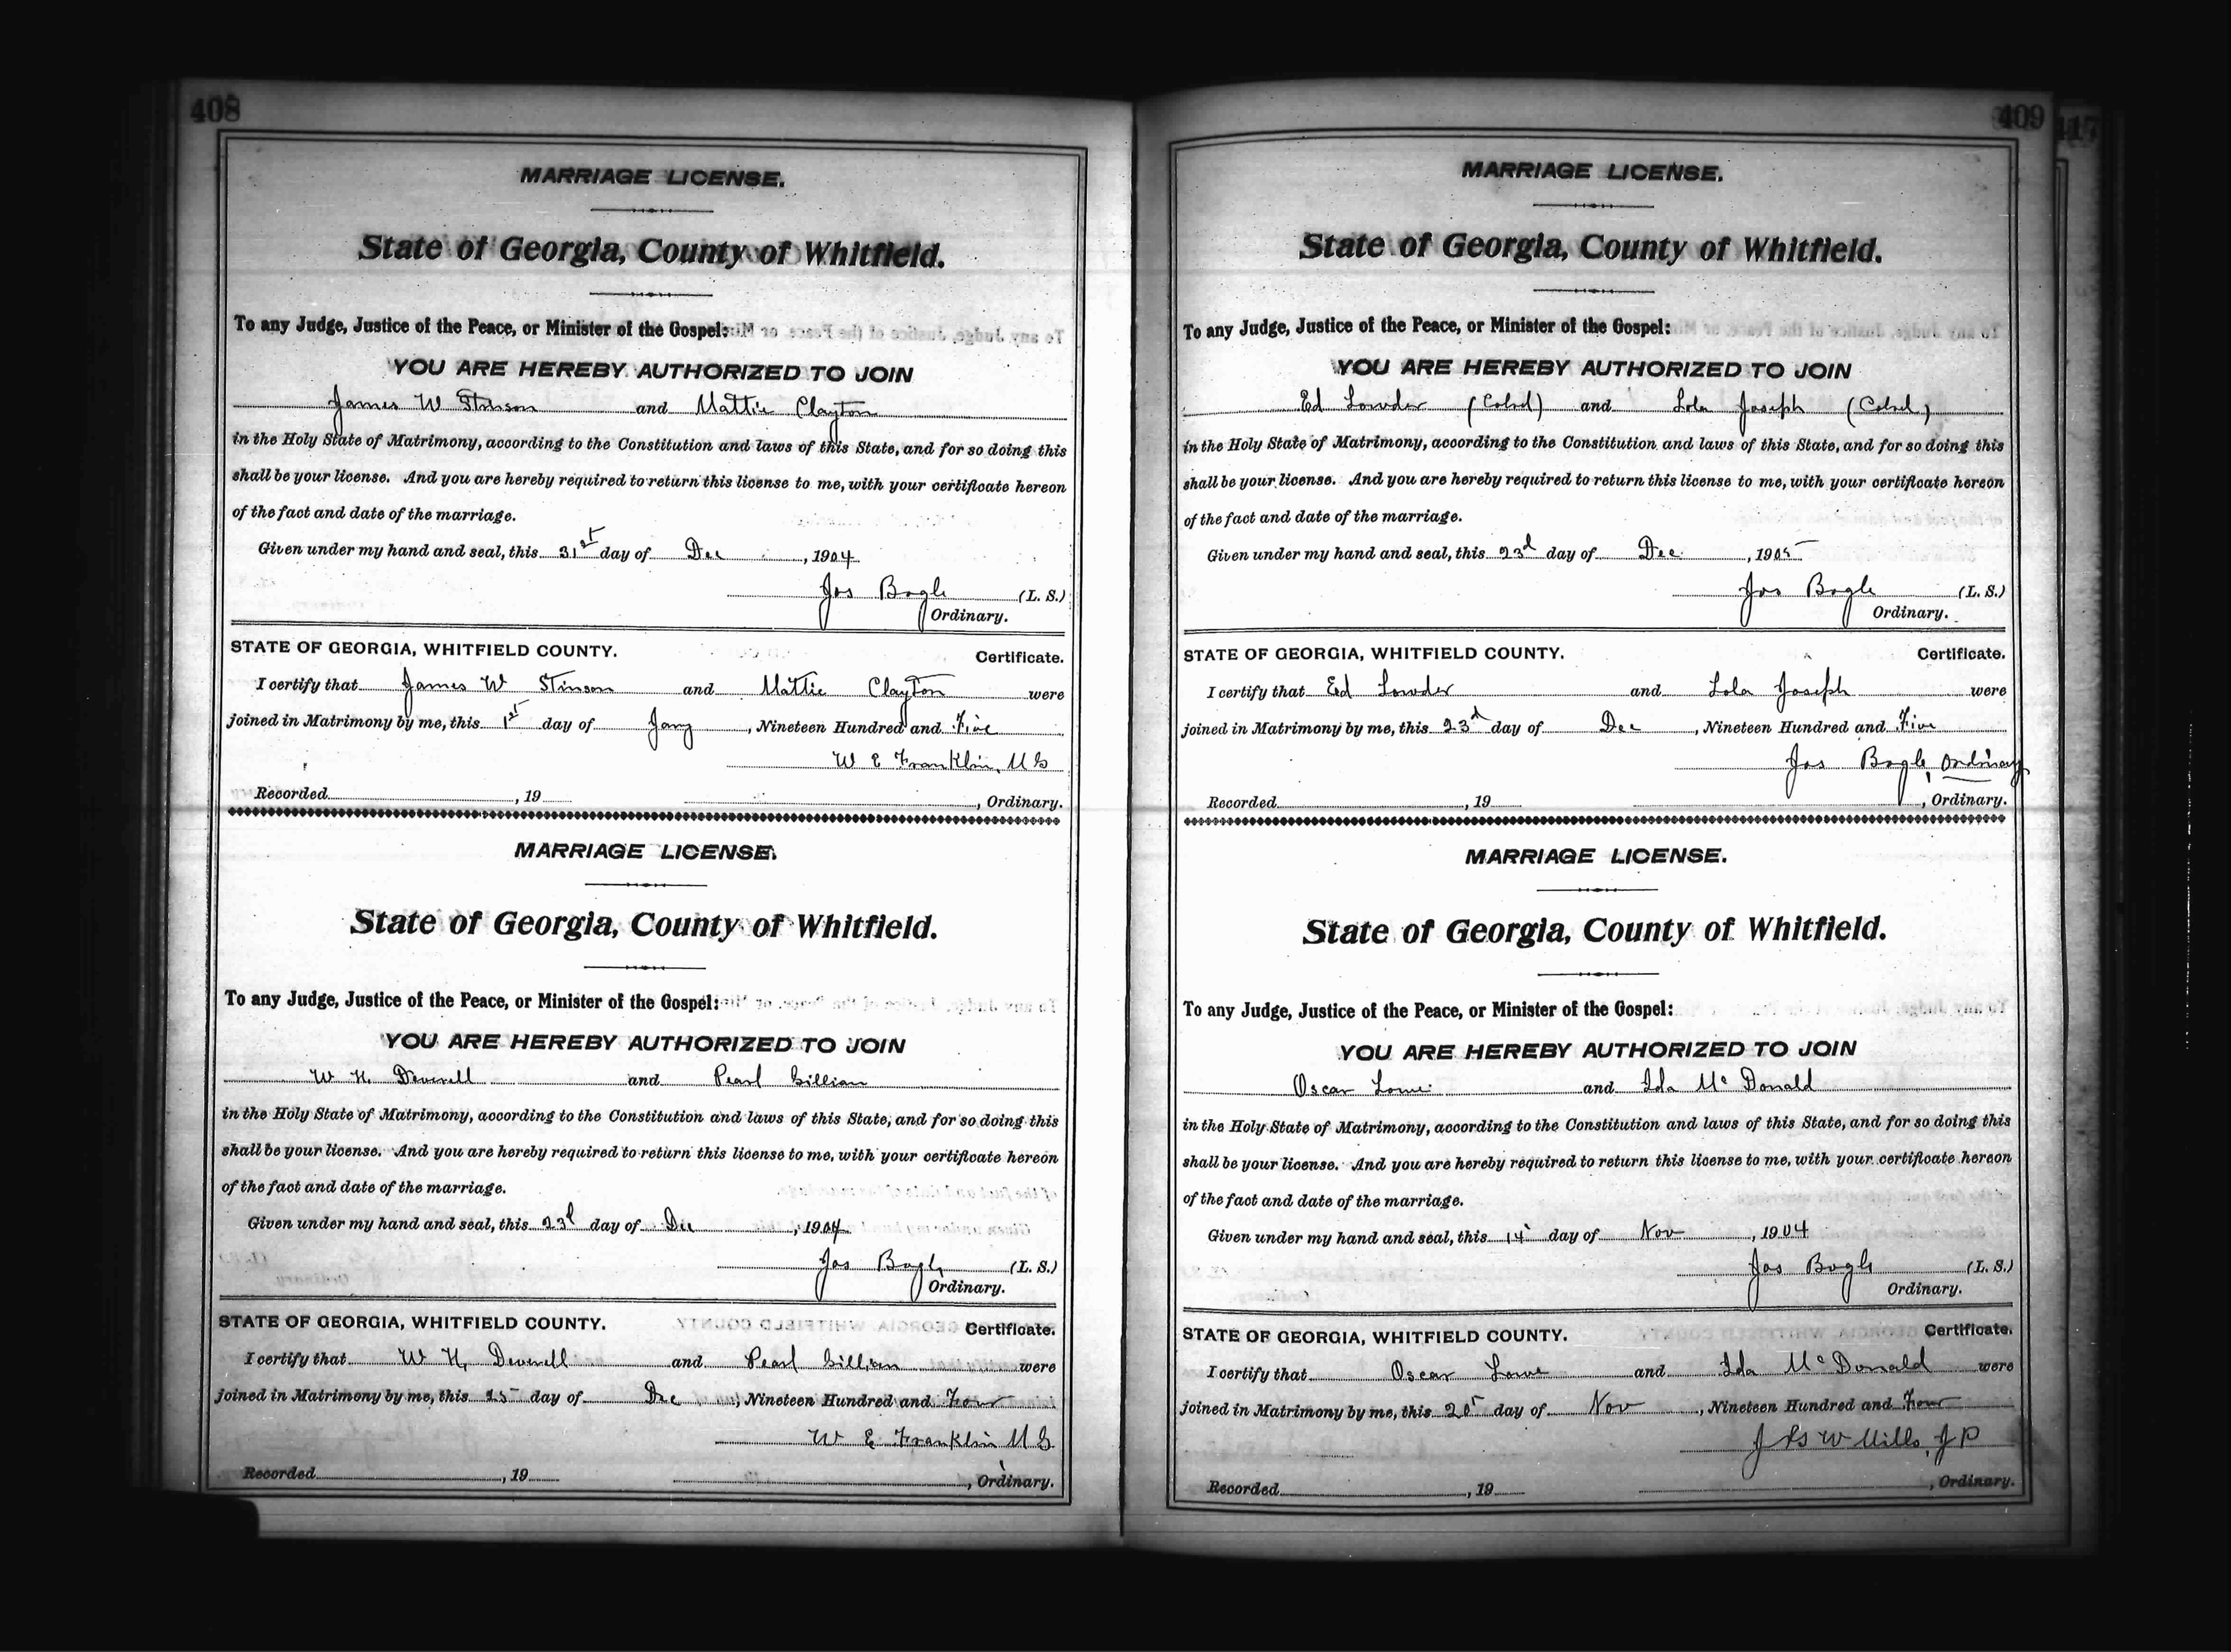 408
MARRIAGE LICENSE.
State of Georgia, County of Whitfield.
To any Judge, Justice of the Peace, or Minister of the Gospel:
YOU ARE HEREBY AUTHORIZED TO JOIN
James W Stinson and Mattie Clayton
in the Holy State of Matrimony, according to the Constitution and laws of this State, and for so doing this
shall be your license. And you are hereby required to return this license to me, with your certificate hereon
of the fact and date of the marriage.
Given under my hand and seal, this 31st day of Dec, 1904
Jos Bogle (L. S.)
Ordinary.
STATE OF GEORGIA, WHITFIELD COUNTY.
Certificate.
I certify that James W Stinson and Mattie Clayton were
joined in Matrimony by me, this 1st day of Jany, Nineteen Hundred and Five
W E Franklin, M G
Recorded, 19, Ordinary.
MARRIAGE LICENSE.
State of Georgia, County of Whitfield.
To any Judge, Justice of the Peace, or Minister of the Gospel:
YOU ARE HEREBY AUTHORIZED TO JOIN
W H Deverell and Pearl Gillian
in the Holy State of Matrimony, according to the Constitution and laws of this State, and for so doing this
shall be your license. And you are hereby required to return this license to me, with your certificate hereon
of the fact and date of the marriage.
Given under my hand and seal, this 23d day of Dec, 1904
Jos Bogle (L. S.)
Ordinary.
STATE OF GEORGIA, WHITFIELD COUNTY.
Certificate.
I certify that W H Deverell and Pearl Gillian were
joined in Matrimony by me, this 25 day of Dec, Nineteen Hundred and Four
W E Franklin M G
Recorded, 19, Ordinary.
409
117
MARRIAGE LICENSE.
State of Georgia, County of Whitfield.
To any Judge, Justice of the Peace, or Minister of the Gospel:
YOU ARE HEREBY AUTHORIZED TO JOIN
Ed Lowder (Cold) and Lola Joseph (Cold)
in the Holy State of Matrimony, according to the Constitution and laws of this State, and for so doing this
shall be your license. And you are hereby required to return this license to me, with your certificate hereon
of the fact and date of the marriage.
Given under my hand and seal, this 23d day of Dec., 1905
Jos Bogle (L. S.)
Ordinary.
STATE OF GEORGIA, WHITFIELD COUNTY.
Certificate.
I certify that Ed Lowder and Lola Joseph were
joined in Matrimony by me, this 23d day of Dec, Nineteen Hundred and Five
Jos Bogle, Ordinary
Recorded, 19, Ordinary.
MARRIAGE LICENSE.
State of Georgia, County of Whitfield.
To any Judge, Justice of the Peace, or Minister of the Gospel:
YOU ARE HEREBY AUTHORIZED TO JOIN
Oscar Lowe and Ida McDonald
in the Holy State of Matrimony, according to the Constitution and laws of this State, and for so doing this
shall be your license. And you are hereby required to return this license to me, with your certificate hereon
of the fact and date of the marriage.
Given under my hand and seal, this 14 day of Nov, 1904
Jos Bogle (L. S.)
Ordinary.
STATE OF GEORGIA, WHITFIELD COUNTY.
Certificate.
I certify that Oscar Lowe and Ida McDonald were
joined in Matrimony by me, this 20 day of Nov, Nineteen Hundred and Four
W Mills, J P
Recorded, 19, Ordinary.